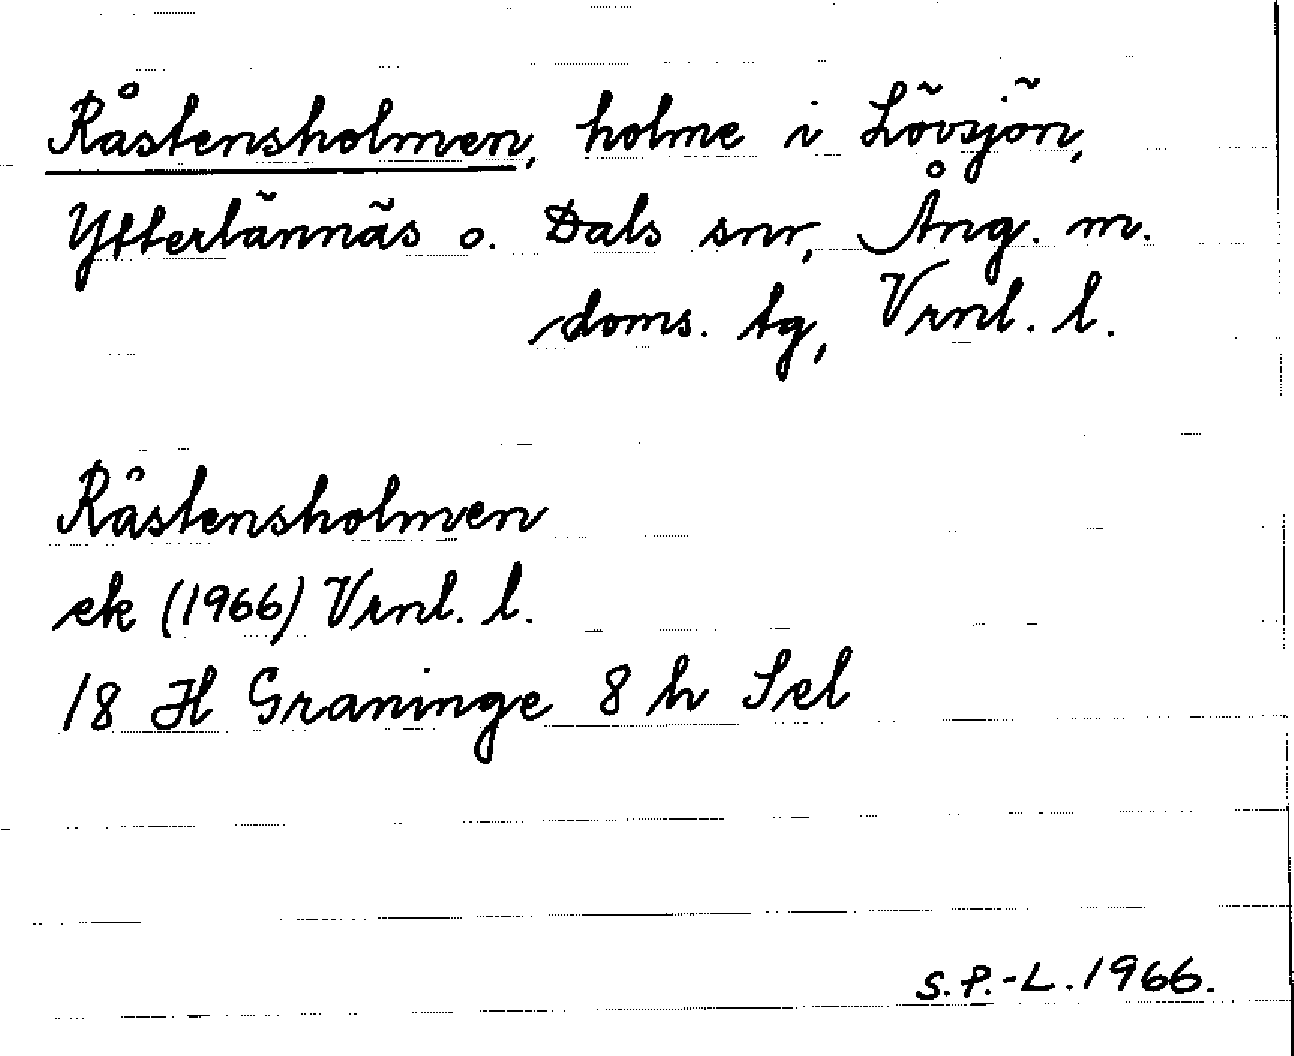 Råstensholmen, holme i Lövsjön,
Ytterlännäs o. Dals snr, Ång. m.
doms. tg, Vrnl. l.
Råstensholmen
ek (1966) Vrnl. l.
18 H Graninge 8 h Sel
S.P.-L. 1966.